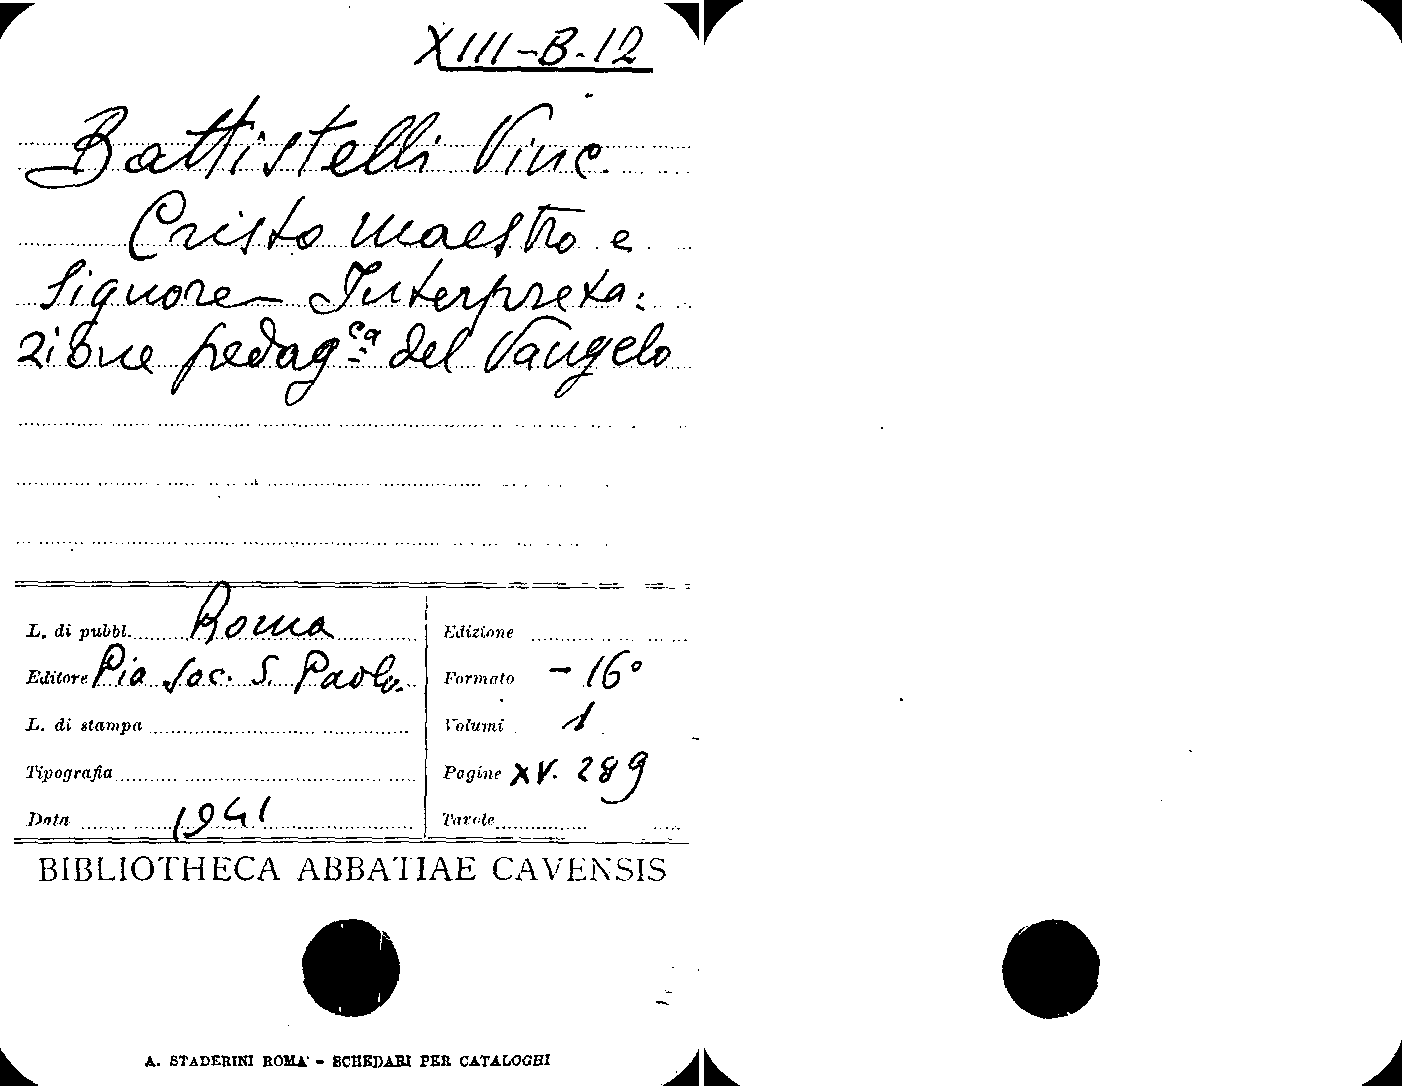 XIII-B-12
Battistelli Vinc.
Cristo maestro e
Signore - Interpreta:
zione pedag.ca del Vangelo
L. di pubbl. Roma
Editore Pia Soc. S. Paolo.
L. di stampa
Tipografia
Data 1941
Edizione
Formato - 16°
Volumi 1
Pagine XV. 289
Tavole
BIBLIOTHECA ABBATIAE CAVENSIS
A. STADERINI ROMA - SCHEDARI PER CATALOGHI